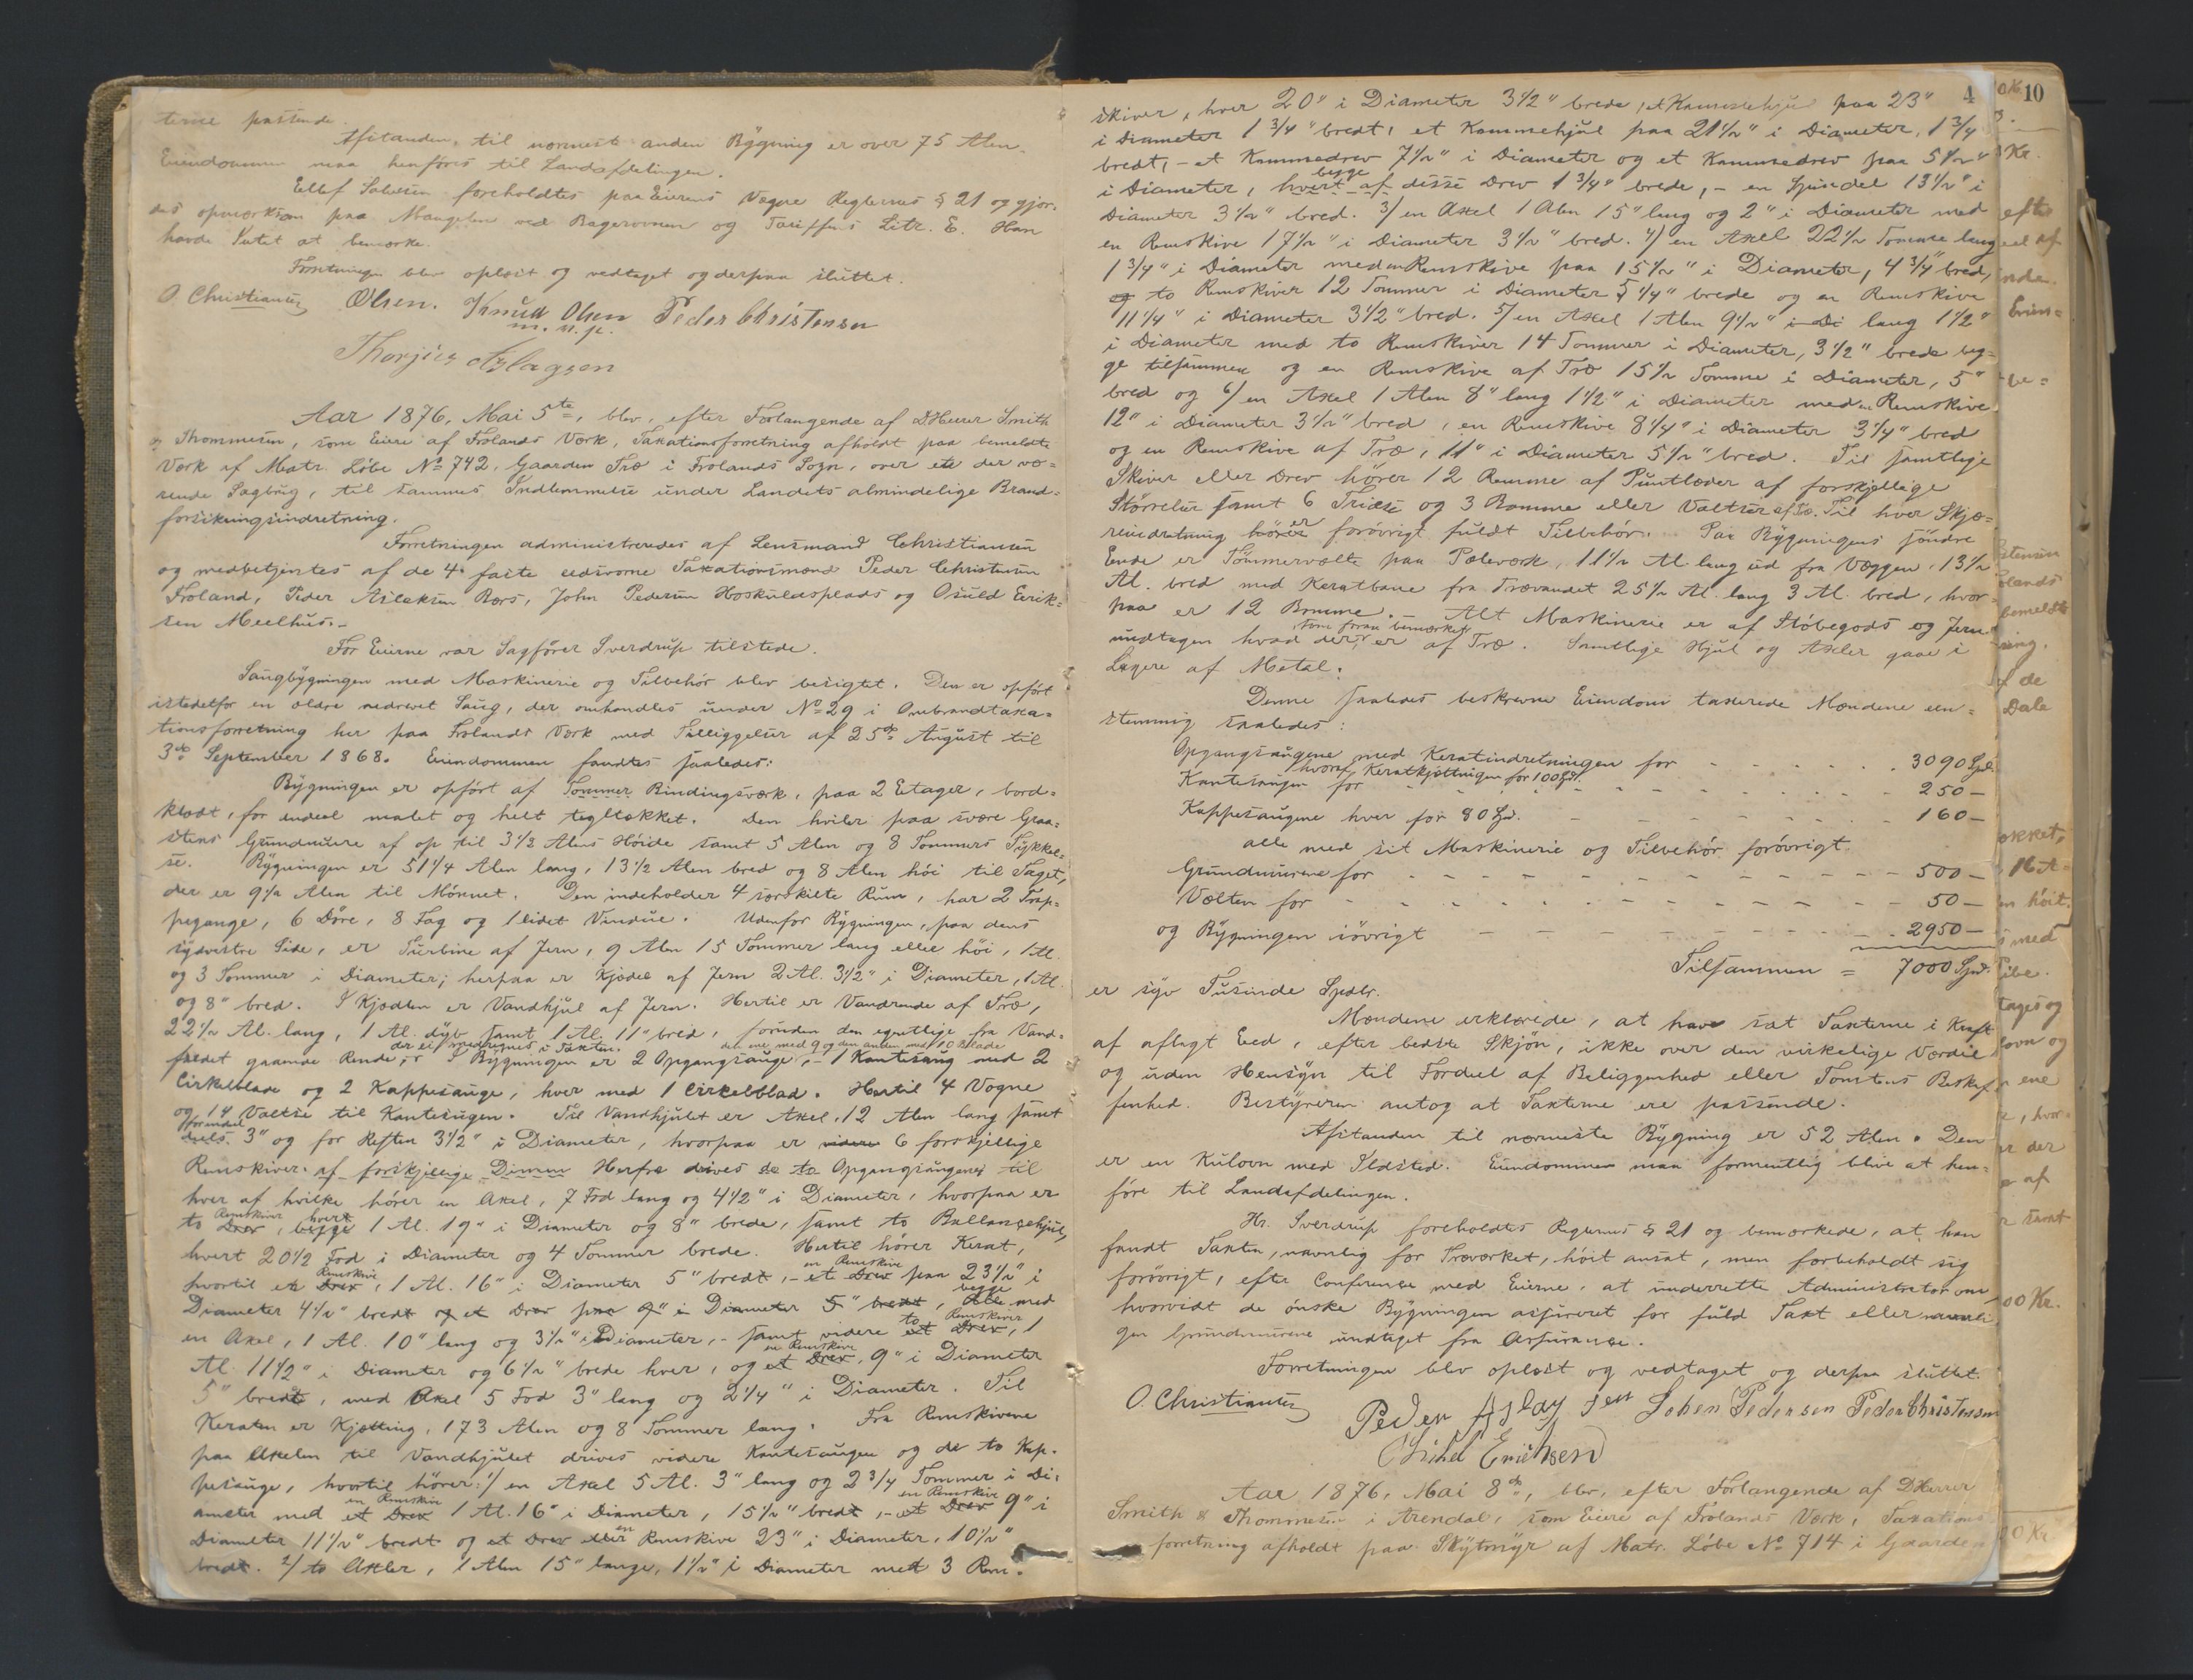 terne passende.
Afstanden til nærmest anden Bygning er over 75 Alen.
Eiendommen maa henføres til Landafdelingen.
Ellef Salvesen foreholdtes paa Eierens Vegne Reglernes § 21 og gjor-
des opmærksom paa Mangelen ved Bagerovnen og Tariffens Litr. E. Han
havde Intet at bemærke.
Forretningen blev oplæst og vedtaget og derpaa sluttet.
O. Christiansen Olsen. Knud Olsen Peder Christensen
m. n. p.
Aslagsen
Aar 1876, Mai 5te, blev, efter Forlangende af DHerrer Smith
& Thommesen, som Eiere af Frolands Værk, Taxationsforretning afholdt paa bemeldte
Værk af Matr. Løbe No 742, Gaarden Træ i Frolands Sogn, over ete der væ-
rende Sagbrug, til sammes Indlemmelse under Landets almindelige Brand-
forsikringsindretning.
Forretningen administreredes af Lensmand Christiansen
og medbetjentes af de 4 faste eedsvorne Taxationsmænd Peder Christensen
Froland, Peder Aslaksen Børs, John Pedersen Hoskuldsplads og Osuld Eerik-
sen Meelhus.-
For Eierne var Sagfører Sverdrup tilstede.
Saugbygningen med Maskinerie og Tilbehør blev besigtet. Den er opført
istedetfor en ældre nedrevet Saug, der omhandles under No 29 i Ombrandtaxa-
tionsforretning her paa Frolands Værk med Tilliggelser af 25de August til
3de September 1868. Eiendommen fandtes saaledes:
Bygningen er opført af Tømmer Bindingsværk, paa 2 Etager, bord-
klædt, for endeel malet og helt tegltækket. Den hviler paa svære Graa-
stens Grundmure af op til 3 1/2 Alens Høide samt 5 Alen og 8 Tommers Tykkel-
se. Bygningen er 51 1/4 Alen lang, 13 1/2 Alen bred og 8 Alen høi til Taget,
der er 9 1/2 Alen til Mønnet. Den indeholder 4 særskilte Rum, har 2 Trap-
pegange, 6 Døre, 8 Fag og 1 lidet Vindue. Udenfor Bygningen, paa dens
sydvestre Side, er Turbine af Jern, 9 Alen 15 Tommer lang eller høi, 1 Al.
og 3 Tommer i Diameter; herpaa er Kjædel af Jern 2 Al. 3 1/2" i Diameter, 1 Al.
og 8" bred. I Kjædlen er Vandhjul af Jern. Hertil er Vandrende af Træ,
22 1/2 Al. lang, 1 Al. dyb samt 1 Al. 11" bred, foruden den egentlige fra Vand-
der ei medregnes i Taxten. den ene med 9 og den anden med 10 Blade
faldet gaaende Rende, I Bygningen er 2 Opgangsauge, - 1 Kantesaug med 2
Cirkelblade og 2 Kappesauge, hver med 1 Cirkelblad. Hertil 4 Vogne
og 14 Valtse til Kantesugen. Til Vandhjulet er Axel, 12 Alen lang samt
for endeel
deels 3" og for Resten 3 1/2" i Diameter, hvorpaa er videre 6 forskjellige
Remskiver. af forskjellige Dimen Herfra drives de to Opgangsaugene, til
hver af hvilke hører en Axel, 7 Fod lang og 4 1/2" i Diameter, hvorpaa er
Remskiver hvert
to Drev, begge 1 Al. 19" i Diameter og 8" brede, samt to Ballancehjul,
hvert 20 1/2 Fod i Diameter og 4 Tommer brede. Hertil hører Kerat,
Remskive en Remskive
hvortil en Drev, 1 Al. 16" i Diameter 5" bredt, - et Drev paa 23 1/2" i
begge
Diameter 4 1/2" bredt og et Drev paa 9" i Diameter 5" bredt, Alle med
to Remskiver
en Axel, 1 Al. 10" lang og 3 1/2" i Diameter, - samt videre et Drev, 1
en Remskive
Al. 11 1/2" i Diameter og 6 1/2" brede hver, og et Drev, 9" i Diameter
5" bredt, med Axel 5 Fod 3" lang og 2 1/4" i Diameter. Til
Keraten er Kjætting, 173 Alen og 8 Tommer lang. Fra Remskiverne
paa Axelen til Vandhjulet drives videre Kantesaugen og de to Kap-
pesauge, hvortil hører: 1/ en Axel 5 Al. 3" lang og 2 3/4 Tommer i Di-
en Remskive en Remskive
ameter med et Drev 1 Al. 16" i Diameter, 15 1/2" bredt, - et Drev 9" i
en
Diameter 11 1/2" bredt og et Drev eller Remskive 23" i Diameter, 10 1/2"
bredt. 2/ to Axler, 1 Alen 15" lange, 1 1/2" i Diameter med 3 Rem-
4
10
skiver, hver 20" i Diameter 3 1/2" brede, et Kammehjul paa 23"
i Diameter 1 3/4" bredt, et Kammehjul paa 21 1/2" i Diameter, 1 3/4
bredt, - et Kammedrev 7 1/2" i Diameter og et Kammedrev paa 5 1/2"
begge
i Diameter, hvert af disse Drev 1 3/4" brede, - en Spindel 13 1/2" i
Diameter 3 1/2" bred. 3/ en Axel 1 Alen 15" lang og 2" i Diameter med
en Remskive 17 1/2" i Diameter 3 1/2" bred. 4/ en Axel 22 1/2 Tomme lang
1 3/4" i Diameter med en Remskive paa 15 1/2" i Diameter, 4 3/4" bred,
og to Remskiver 12 Tommer i Diameter 5 1/4" brede og en Remskive
11 1/4" i Diameter 3 1/2" bred. 5/ en Axel 1 Alen 9 1/2" i Di lang 1 1/2"
i Diameter med to Remskiver 14 Tommer i Diameter, 3 1/2" brede beg-
ge tilsammen og en Remskive af Træ 15 1/2 Tomme i Diameter, 5"
bred og 6/ en Axel 1 Alen 8" lang 1 1/2" i Diameter med en Remskive
12" i Diameter 3 1/2" bred, en Remskive 8 1/4" i Diameter 3 1/4" bred
og en Remskive af Træ, 11" i Diameter 5 1/2" bred. Til samtlige
Skiver eller Drev hører 12 Remme af Puntlæder af forskjellige
Størrelser samt 6 Tridse og 3 Bomme eller Valtser af Træ. Til hver Skjæ-
er
reindretning hører forøvrigt fuldt Tilbehør. Paa Bygningens søndre
Ende er Tømmervælte paa Pæleværk, 11 1/2 Al. lang ud fra Væggen, 13 1/2
Al. bred med Keratbane fra Trævandet 25 1/2 Al. lang 3 Al. bred, hvor-
paa er 12 Bomme. - Alt Maskinerie er af Støbegods og Jern
som foran bemærket
undtagen hvad der, er af Træ. Samtlige Hjul og Axler gaae i
Lagere af Metal.
Denne saaledes beskrevne Eiendom taxerede Mændene een-
stemmig saaledes:
Opgangsaugene med Keratindretningen for - - - 3090 Spd.
hvoraf Keratkjættingen for 100 Spd.
Kantesaugen for - - - 250 -
Kappesaugene hver for 80 Spd. - - - 160 -
alle med sit Maskinerie og Tilbehør forøvrigt.
Grundmurene for - - - 500 -
Vælten for - - - 50 -
og Bygningen iøvrigt - - - 2950 -
Tilsammen = 7000 Spd.
er syv Tusinde Spdlr.
Mændene erklærede, at have sat Taxterne i Kraft
af aflagt Eed, efter bedste Skjøn, ikke over den virkelige Værdie
og uden Hensyn til Fordeel af Beliggenhed eller Tomtens Beskaf-
fenhed. Bestyreren antog at Taxterne ere passende.
Afstanden til nærmeste Bygning er 52 Alen. Den
er en Kulovn med Ildsted. Eiendommen maa formentlig blive at hen-
føre til Landafdelingen.
Hr. Sverdrup foreholdtes Reglernes § 21 og bemærkede, at han
fandt Taxten, navnlig for Træværket, høit ansat, men forbeholdt sig
forøvrigt, efter Conference med Eierne, at underrette Administrator om
hvorvidt de ønske Bygningen assureret for fuld Taxt eller
gen Grundmurene undtaget fra Assurance.
Forretningen blev oplæst og vedtaget og derpaa sluttet.
O. Christiansen Peder Aslagsen Johen Pedersen Peder Christensen
Erichsen
Aar 1876, Mai 8de, blev, efter Forlangende af DHerrer
Smith & Thommesen i Arendal, som Eiere af Frolands Værk, Taxations
forretning afholdt paa Skytmyr af Matr. Løbe No 714 i Gaarden